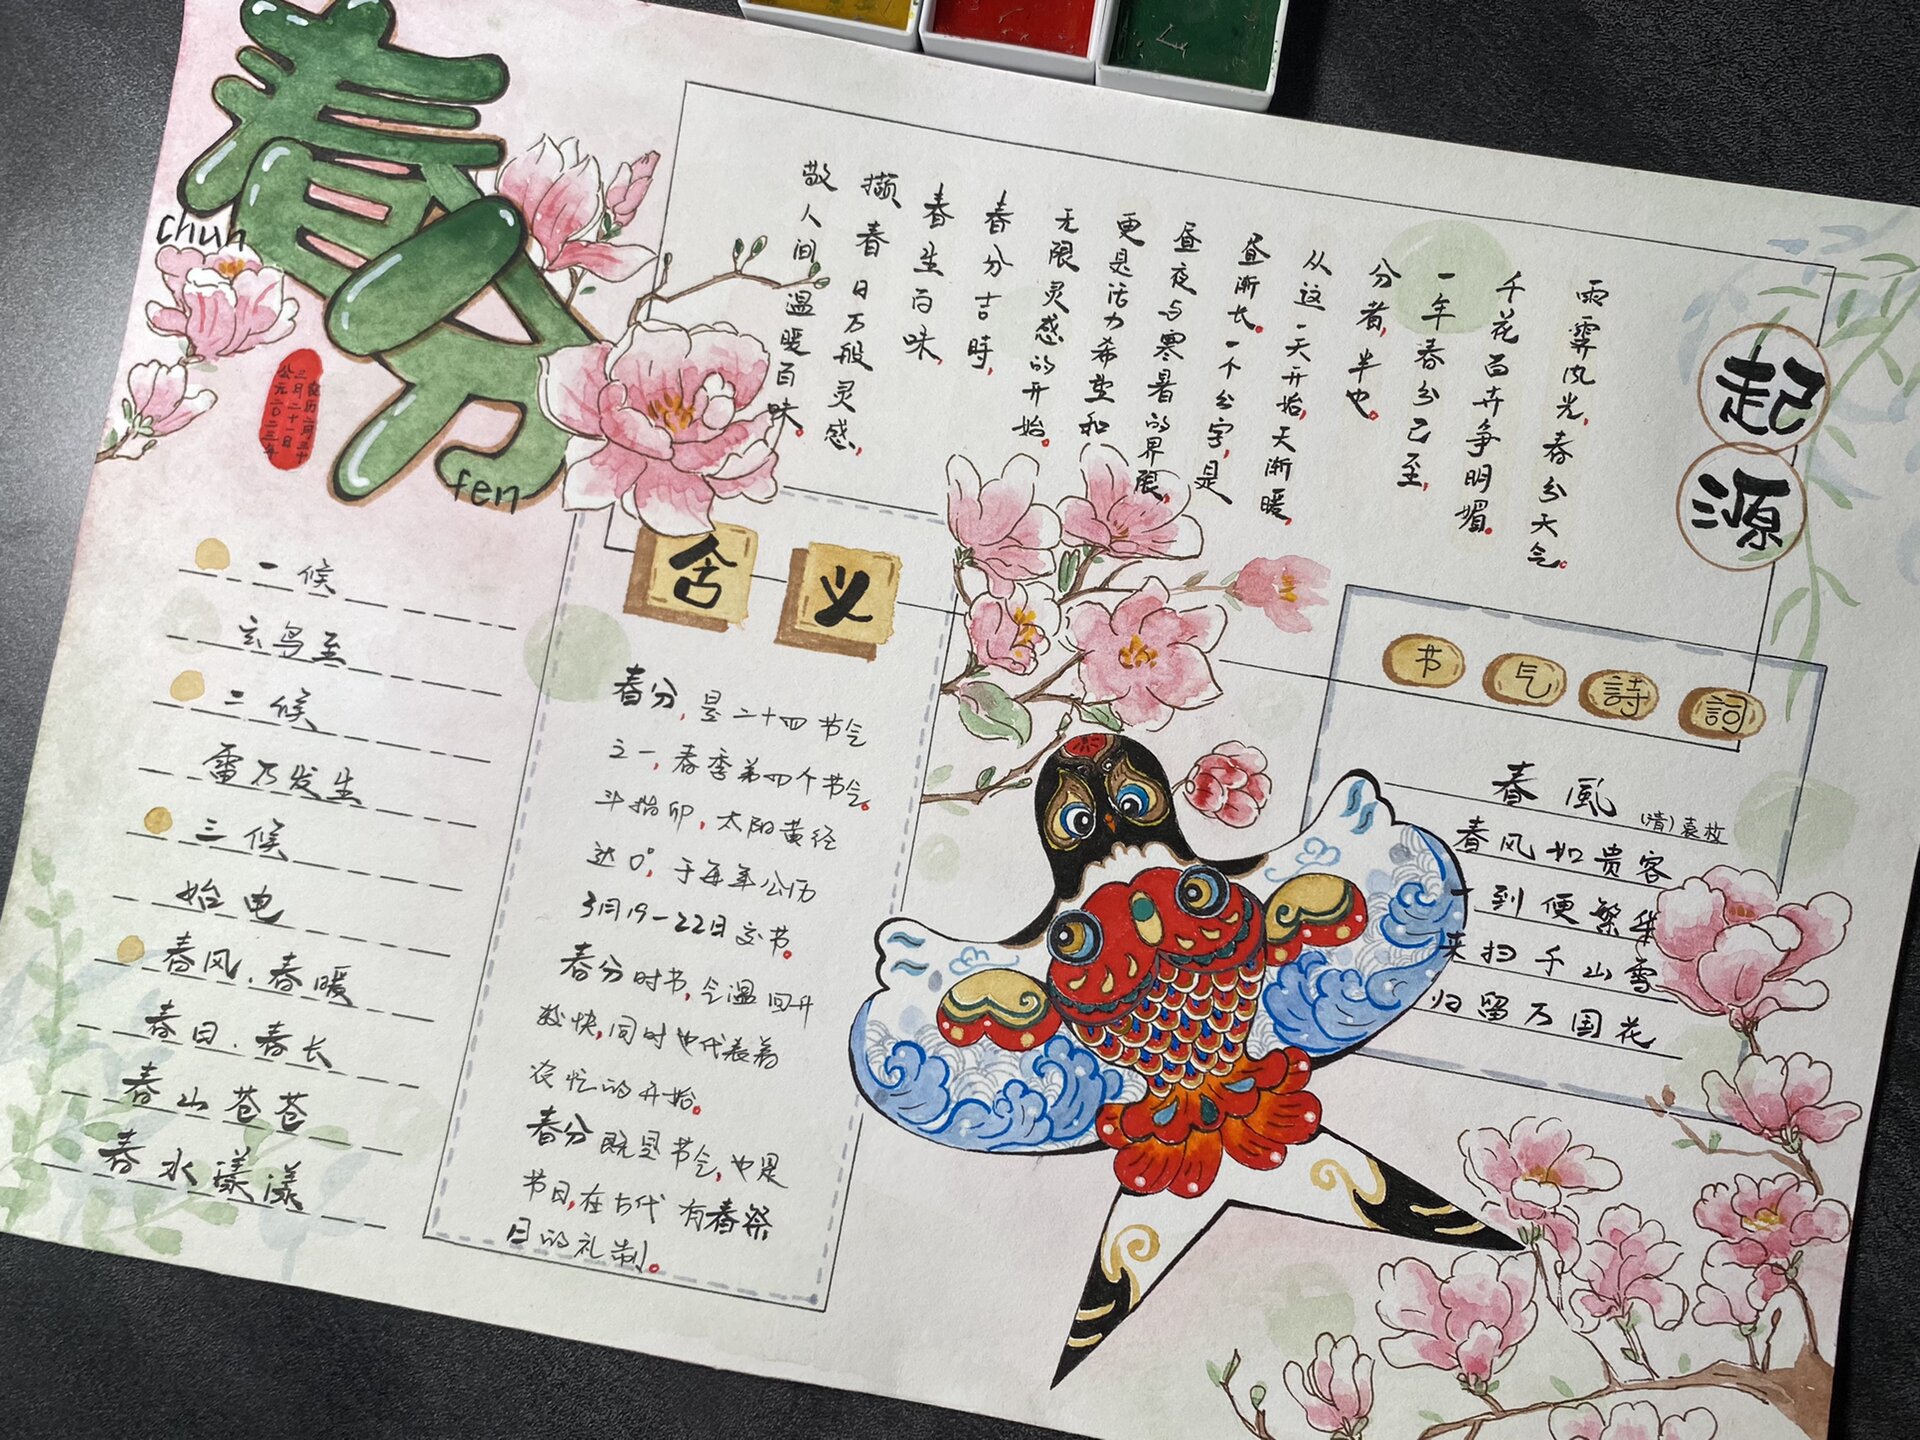 春分
chun
fen
农历二月三十
三月二十一日
公元二〇二三年
起源
雨霁风光，春分天气。
千花百卉争明媚。
一年春分已至，
分者，半也。
从这一天开始，天渐暖，
昼渐长。一个分字，是
昼夜与寒暑的界限，
更是活力希望和
无限灵感的开始。
春分吉時，
春生百味，
撷春日万般灵感，
敬人间温暖百味。
一候
玄鸟至
二候
雷乃发生
三候
始电
春风.春暖
春日.春长
春山苍苍
春水漾漾
含义
春分，是二十四节气
之一，春季第四个节气。
斗指卯，太阳黄经
达0°，于每年公历
3月19-22日交节。
春分时节，气温回升
较快，同时也代表着
农忙的开始。
春分既是节气，也是
节日，在古代有春祭
日的礼制。
节气詩詞
春風
(清)袁枚
春风如贵客
一到便繁华
来扫千山雪
归留万国花